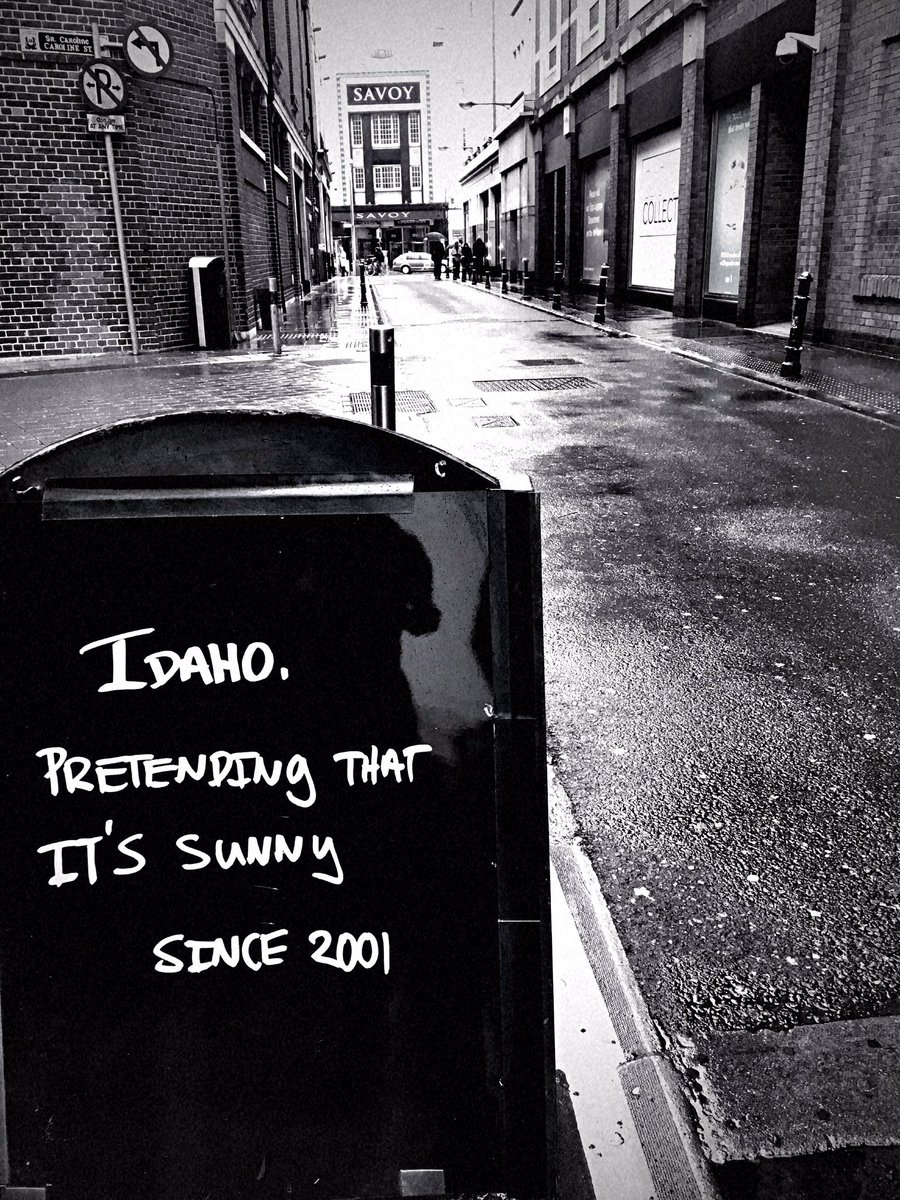 SR. Caroline
CAROLINE ST.
P
AT ANY TIME
SAVOY
SAVOY
COLLECT
IDAHO.
PRETENDING THAT
IT'S SUNNY
SINCE 2001